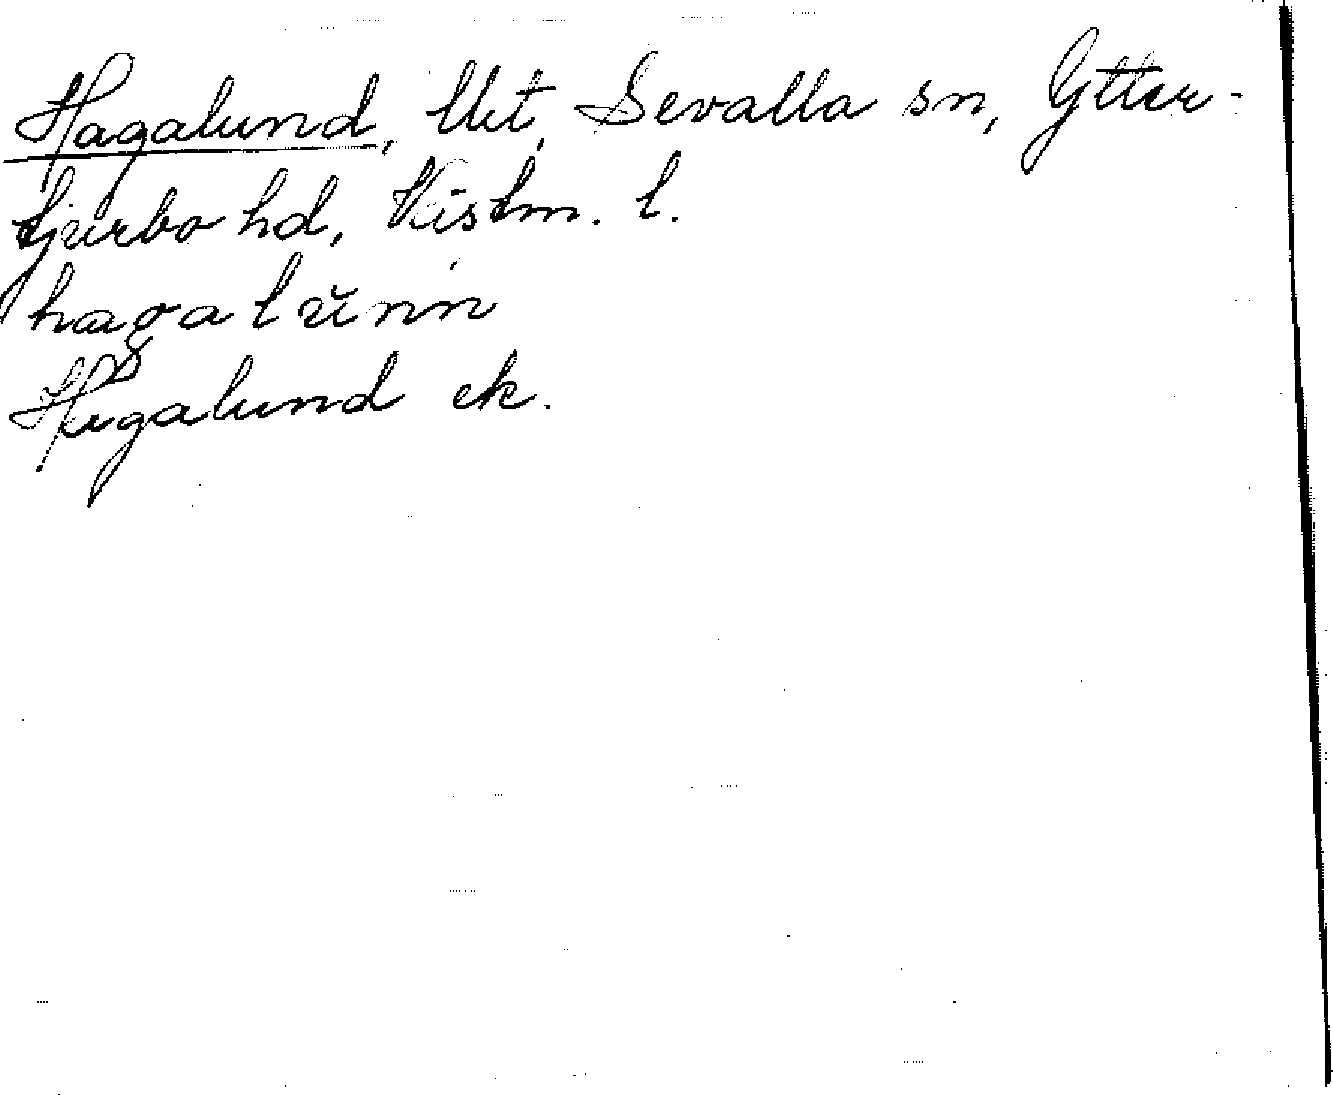 Hagalund, lht, Sevalla sn, Ytter-
tjurbo hd, Västm. l.
hagalŭnn
Hagalund ek.